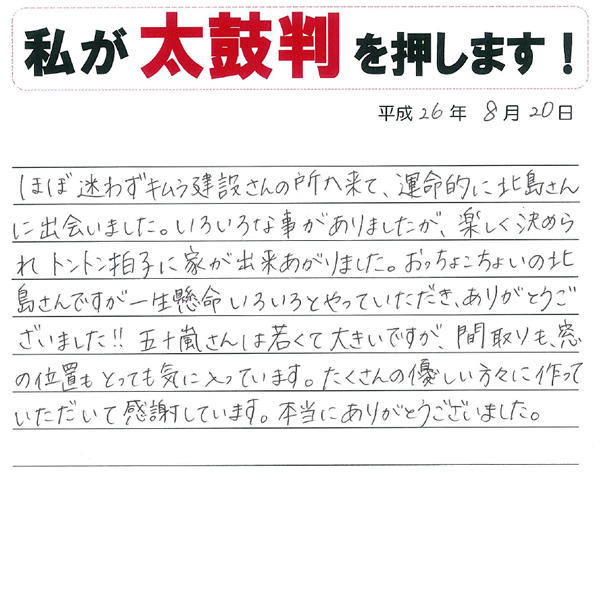 私が太鼓判を押します！
平成26年 8月20日
ほぼ迷わずキムラ建設さんの所へ来て、運命的に北島さん
に出会いました。いろいろな事がありましたが、楽しく決めら
れトントン拍子に家が出来あがりました。おっちょこちょいの北
島さんですが一生懸命いろいろとやっていただき、ありがとうご
ざいました!! 五十嵐さんは若くて大きいですが、間取りも、窓
の位置もとっても気に入っています。たくさんの優しい方々に作って
いただいて感謝しています。本当にありがとうございました。